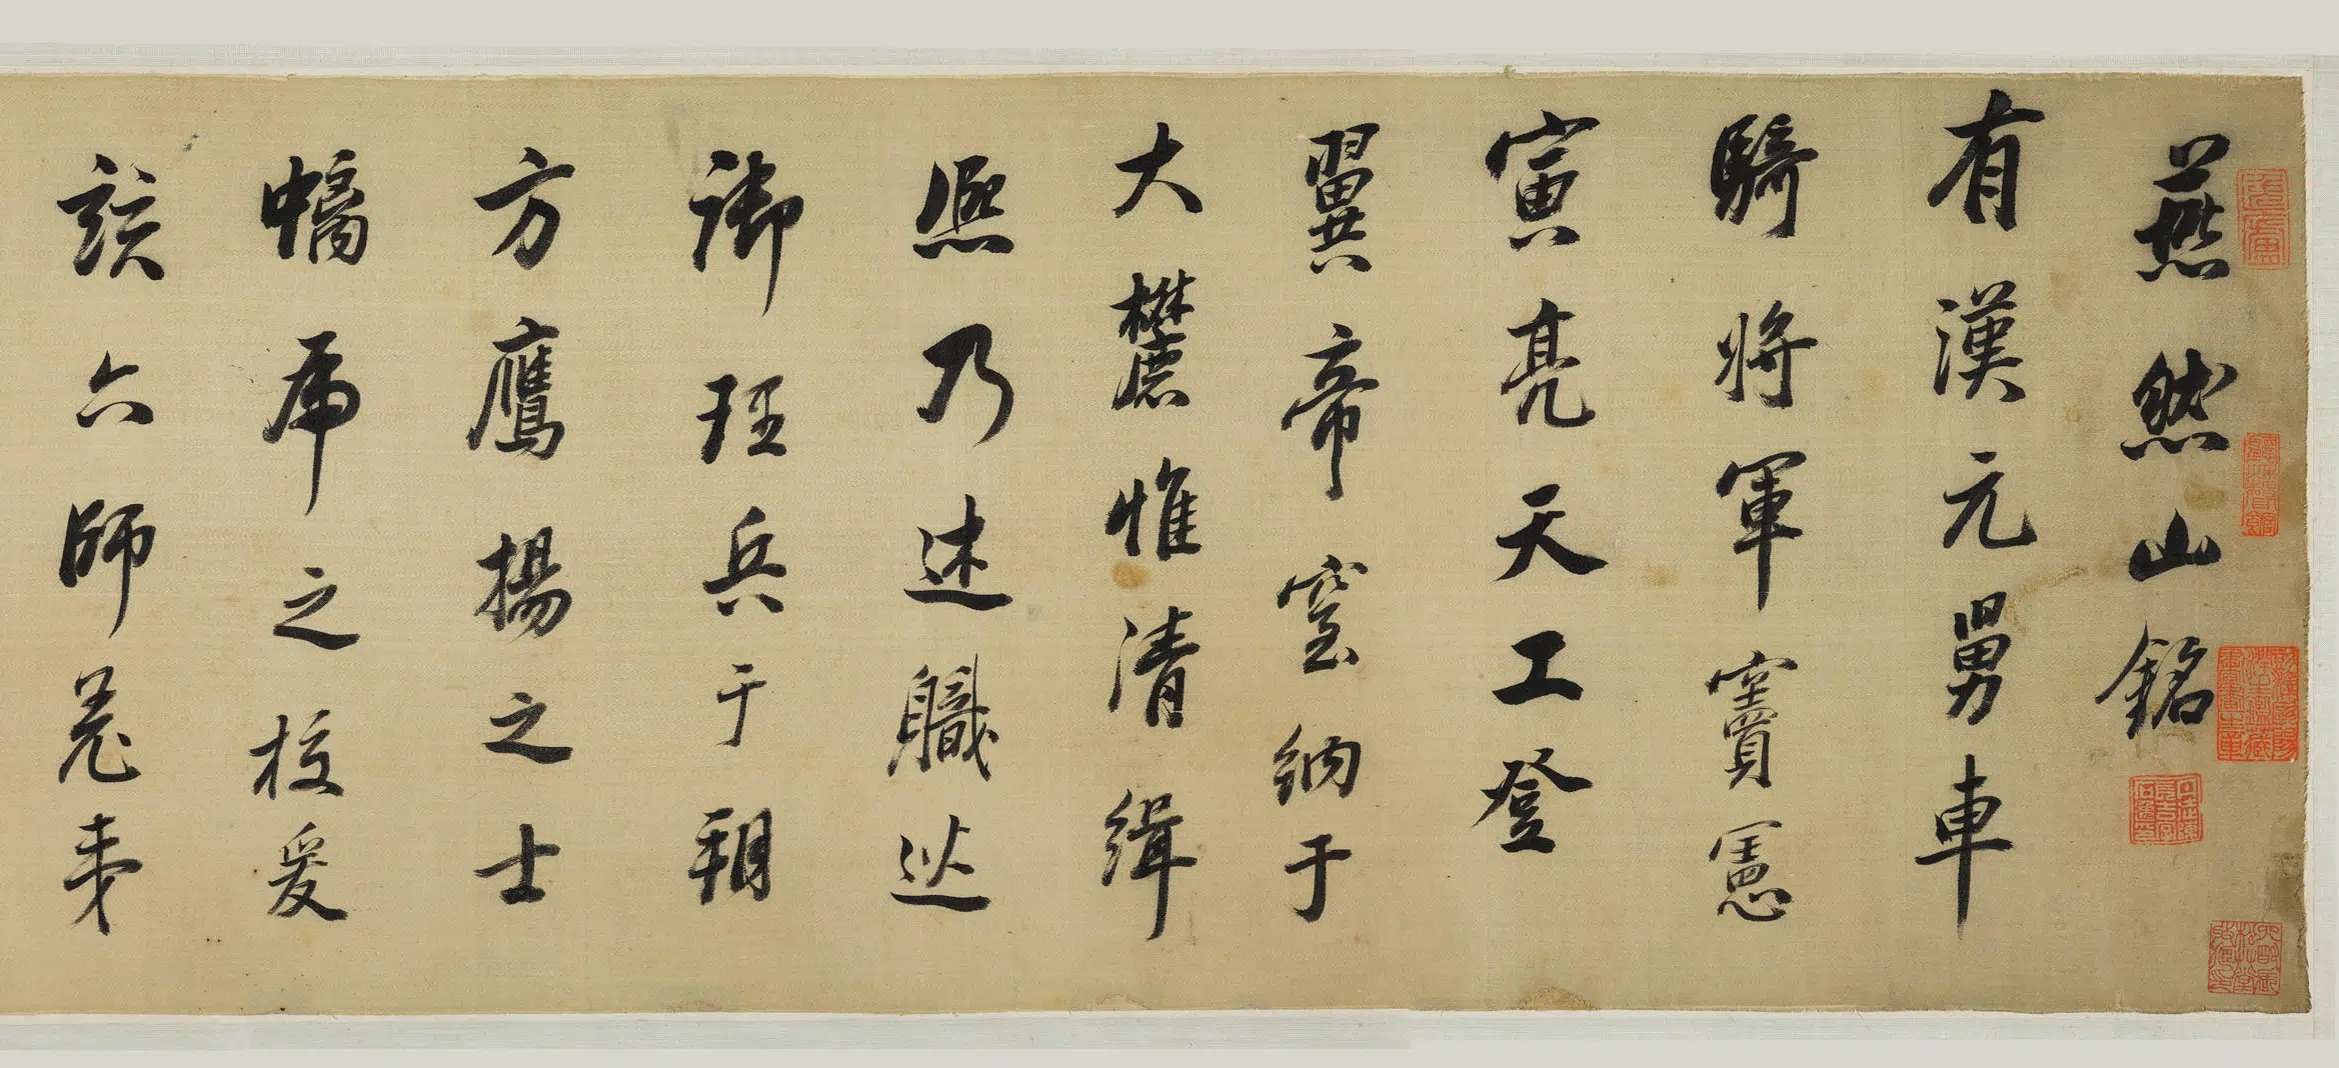 燕然山銘
有漢元舅車
騎將軍竇憲
寅亮天工登
翼帝室納于
大麓惟清緝
熙乃述職巡
御理兵于朔
方鷹揚之士
螭虎之校爰
該六師